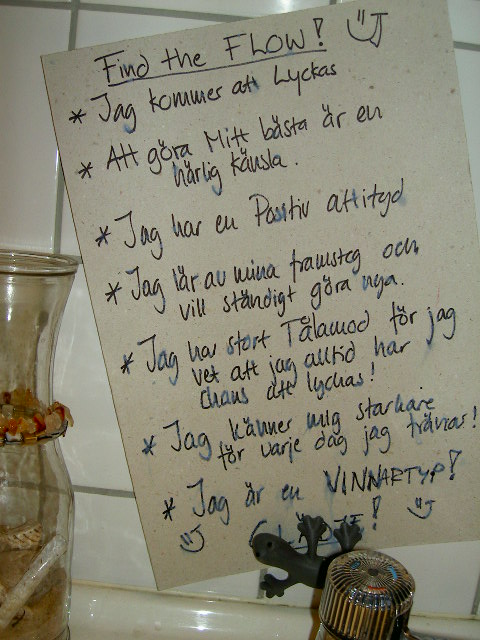 Find the FLOW!
* Jag kommer att Lyckas
* Att göra Mitt bästa är en
härlig känsla.
* Jag har en Positiv attityd
* Jag lär av mina framsteg och
vill ständigt göra nya.
* Jag har stort Tålamod för jag
vet att jag alltid har
chans att lyckas!
* Jag känner mig starkare
för varje dag jag tränar!
* Jag är en VINNARTYP!